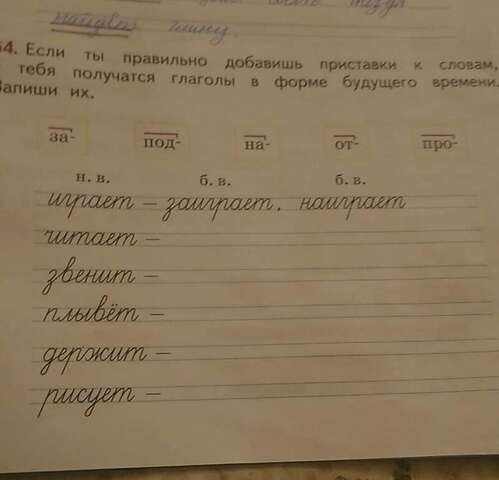 найдёт глину.
54. Если ты правильно добавишь приставки к словам,
тебя получатся глаголы в форме будущего времени.
Запиши их.
за- под- на- от- про-
н. в. б. в. б. в.
играет – заиграет, наиграет
читает –
звенит –
плывёт –
держит –
рисует –